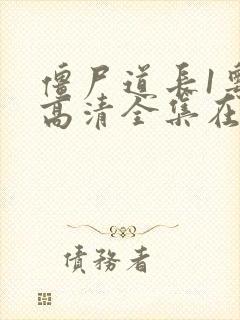 僵尸道长1粤
高清全集在
債務者